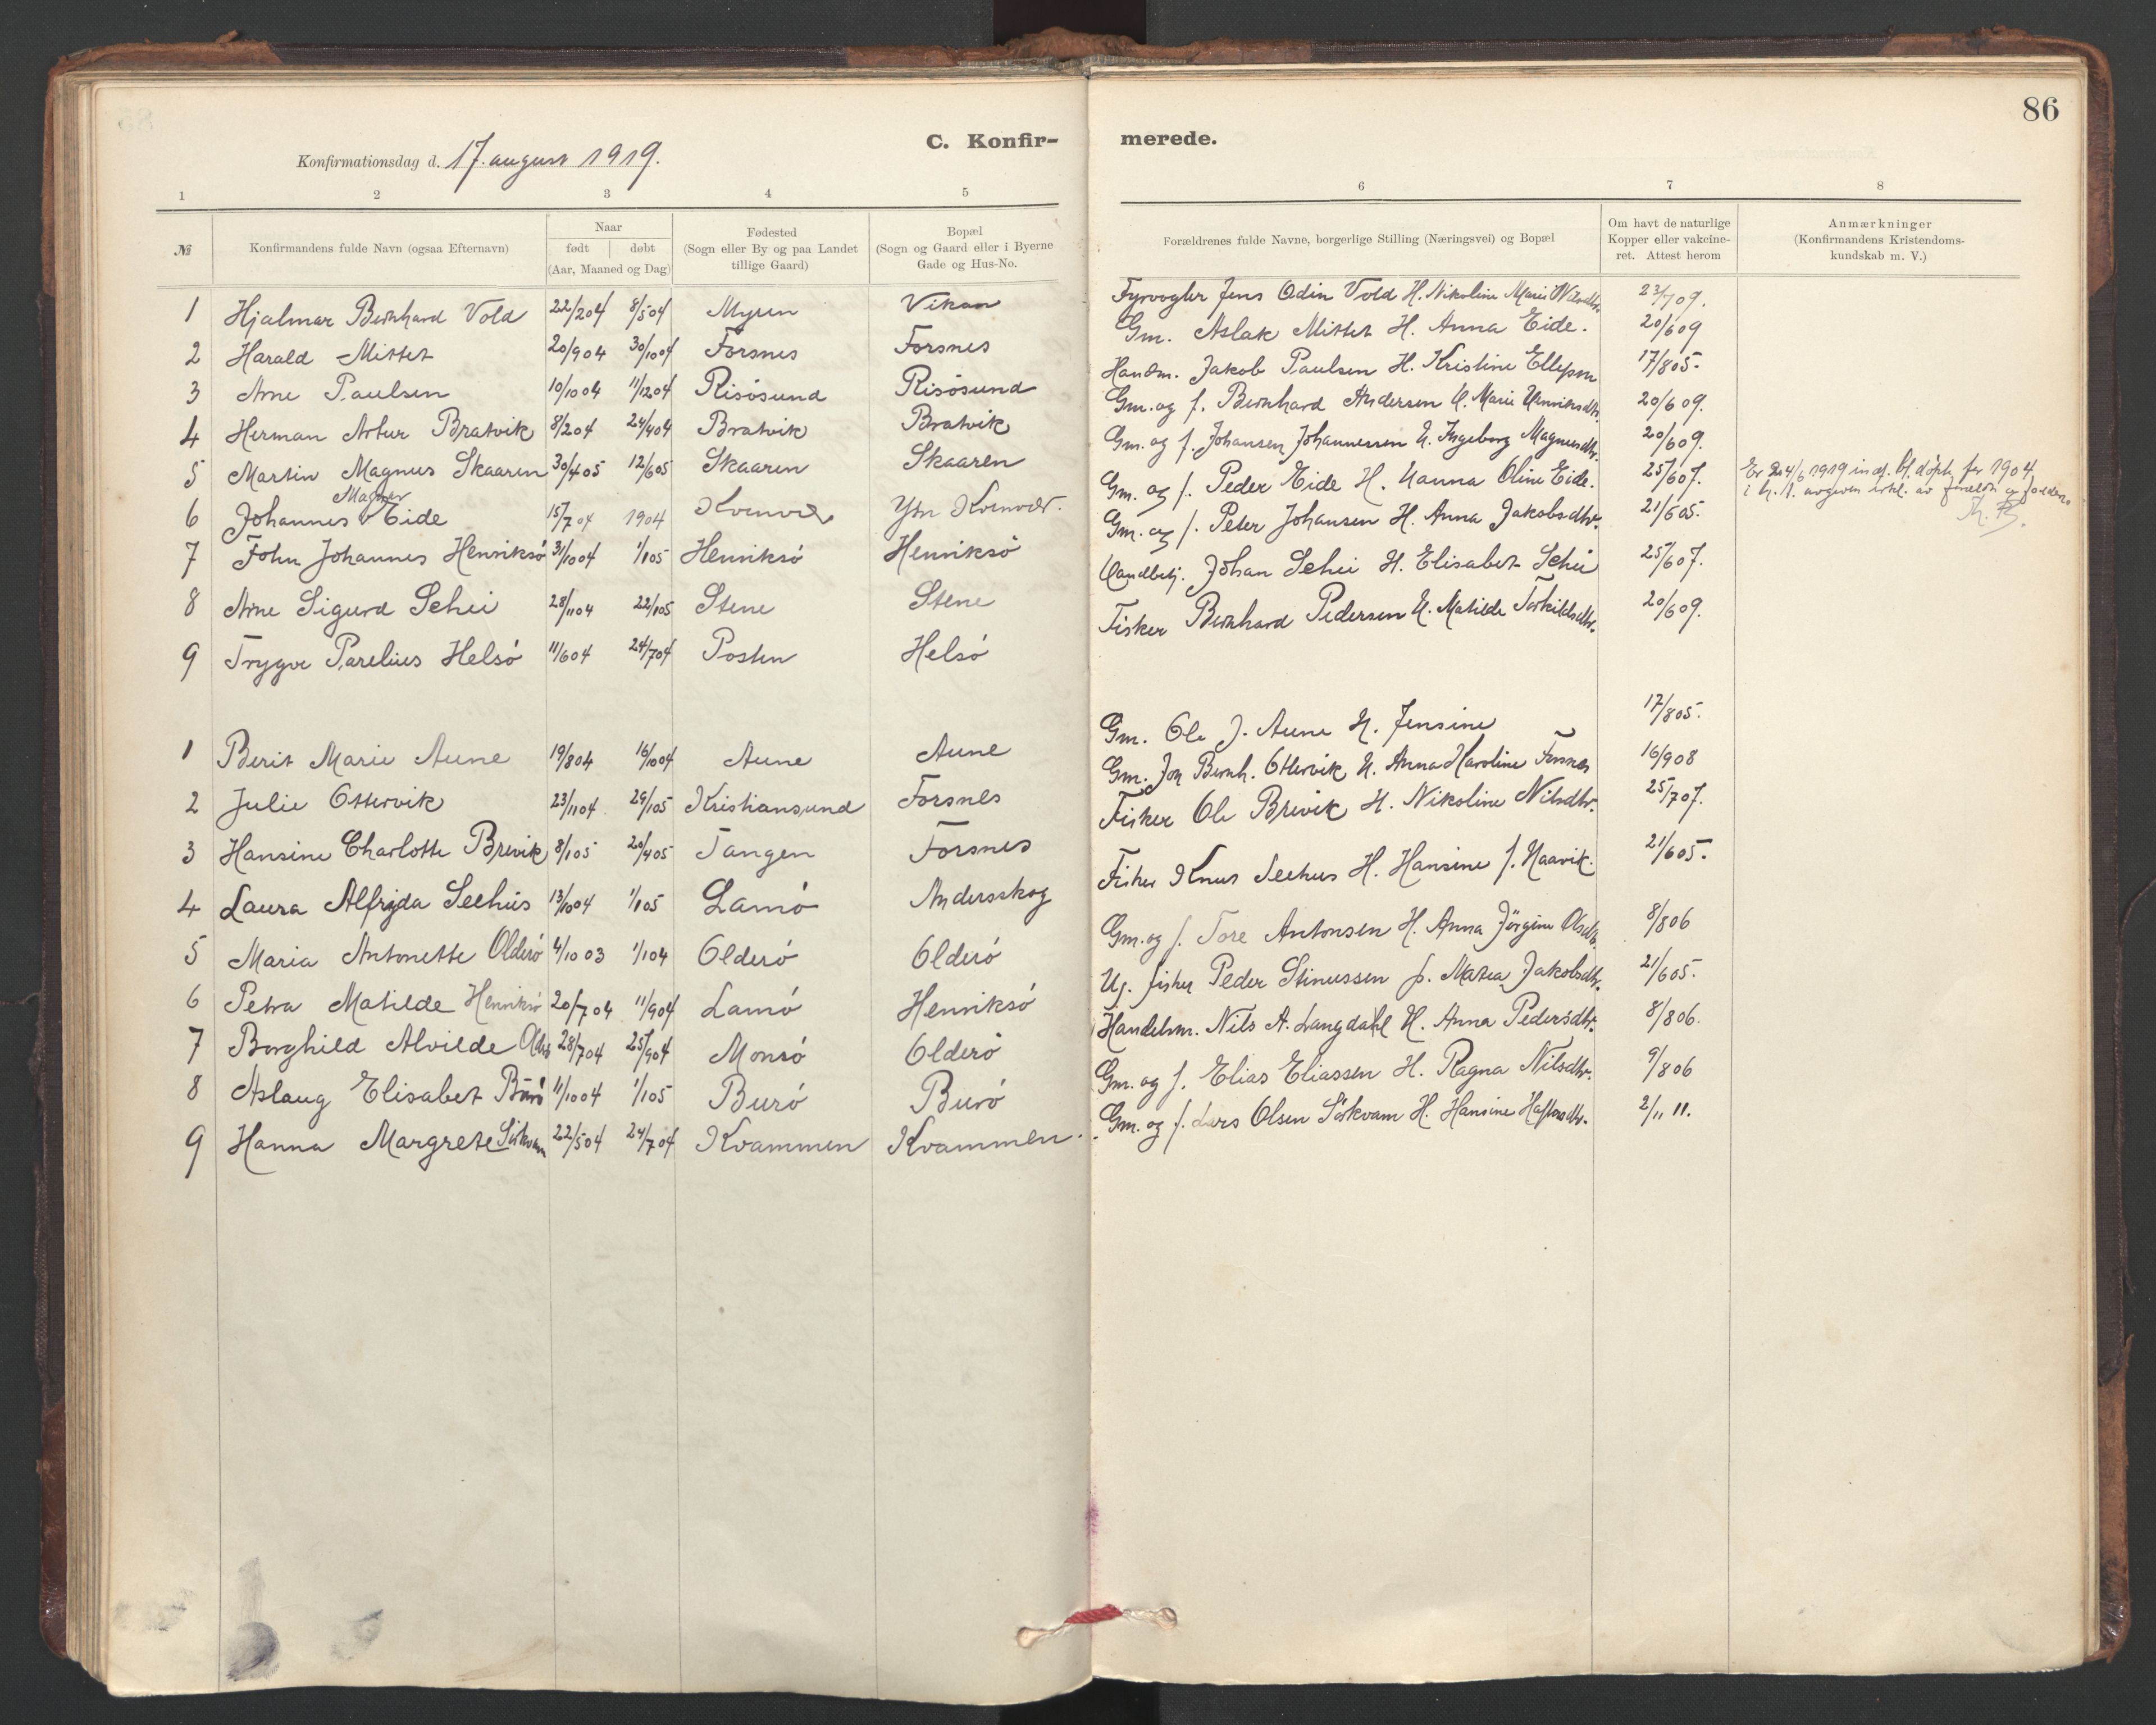 86
C. Konfir-
merede.
Konfirmationsdag d. 17. august 1919.
1 2 3 4 5 6 7 8
№
Konfirmandens fulde Navn (ogsaa Efternavn)
Naar
født døbt
(Aar, Maaned og Dag)
Fødested
(Sogn eller By og paa Landet
tillige Gaard)
Bopæl
(Sogn og Gaard eller i Byerne
Gade og Hus-No.
Forældrenes fulde Navne, borgerlige Stilling (Næringsvei) og Bopæl
Om havt de naturlige
Kopper eller vakcine-
ret. Attest herom
Anmærkninger
(Konfirmandens Kristendoms-
kundskab m. V.)
1 Hjalmar Bernhard Vold 22/2 04 8/5 04 Myren Vikan Fyrvogter Jens Odin Vold H. Nikoline Marie 23/7 09.
2 Harald Mittet 20/9 04 30/10 04 Forsnes Forsnes Gm. Aslak Mittet H. Anna Eide. 20/6 09
3 Arne Paulsen 10/10 04 11/12 04 Risösund Risösund Handm. Jakob Paulsen H. Kristine Ellefsen 17/8 05.
4 Herman Artur Bratvik 8/2 04 24/4 04 Bratvik Bratvik Gm. og f. Bernhard Andersen H. Marie Henriksdtr. 20/6 09.
5 Martin Magnus Skaaren 30/4 05 12/6 05 Skaaren Skaaren Gm. og f. Johansen Johannessen H. Ingeborg Magnusdtr. 20/6 09.
6 Johannes Magner Eide 15/7 04 1904 Kvenvær Ytr. Kvenvær. Gm. og f. Peder Eide H. Hanna Oline Eide. 25/6 07. Er 24/6 1919 indf. bl. døpte for 1904
i h. t. avgiven erkl. av forældre og faddere.
7 John Johannes Henriksö 31/10 04 1/1 05 Henriksö Henriksö Gm. og f. Peter Johansen H. Anna Jakobsdtr. 21/6 05.
8 Arne Sigurd Schei 28/11 04 22/1 05 Stene Stene Handbetj. Johan Schei H. Elisabet Schei 25/6 07.
9 Trygve Parelius Helsö 11/6 04 24/7 04 Posten Helsö Fisker Bernhard Pedersen H. Matilde Torkildsdtr. 20/6 09.
1 Berit Marie Aune 19/8 04 16/10 04 Aune Aune Gm. Ole J. Aune H. Jensine 17/8 05.
2 Julie Ottervik 23/11 04 29/1 05 Kristiansund Forsnes Gm. Jon Bernh. Ottervik H. Anna Karoline Forsnes 16/9 08
3 Hansine Charlotte Brevik 8/1 05 20/4 05 Tangen Forsnes Fisker Ole Brevik H. Nikoline Nilsdtr. 25/7 07.
4 Laura Alfrida Seehus 13/10 04 1/1 05 Lamö Andersskog Fisker Knut Seehus H. Hansine f. Haavik. 21/6 05.
5 Maria Antonette Olderö 4/10 03 1/1 04 Olderö Olderö Gm. og f. Tore Antonsen H. Anna Jörgine Olsdtr. 8/8 06
6 Petra Matilde Henriksö 20/7 04 11/9 04 Lamö Henriksö Ug. fisker Peder Stinussen p. Matea Jakobsdtr. 21/6 05.
7 Borghild Alvilde 28/7 04 25/9 04 Monsö Olderö Handelsm. Nils A. Langdahl H. Anna Pedersdtr. 8/8 06.
8 Aslaug Elisabet Burö 11/10 04 1/1 05 Burö Burö Gm. og f. Elias Eliassen H. Ragna Nilsdtr. 9/8 06
9 Hanna Margrete Sörkvam 22/5 04 24/7 04 Kvammen Kvammen. Gm. og f. Lars Olsen Sörkvam H. Hansine Haftorsdtr. 2/11 11.